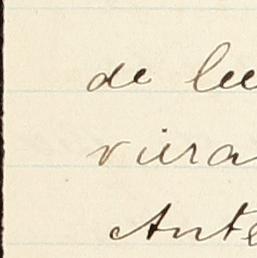 de lee
viera
Ante